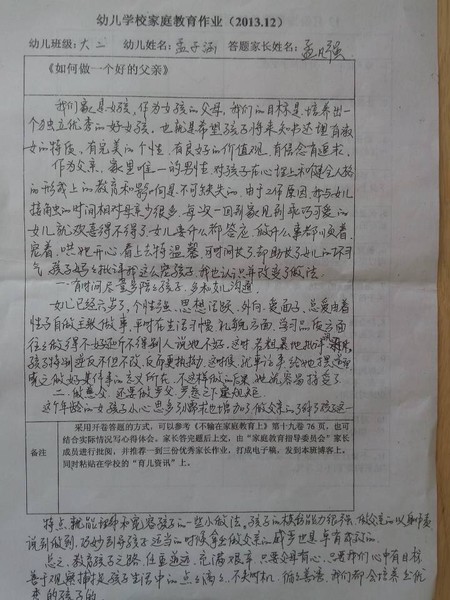 幼儿学校家庭教育作业（2013.12）
幼儿班级：大二 幼儿姓名：孟子涵 答题家长姓名：孟凡强
《如何做一个好的父亲》
我们家是女孩，作为女孩的父母，我们的目标是培养出一
个独立优秀的好女孩，也就是希望孩子将来知书达理有淑
女的特质、有完美的个性、有良好的价值观、有信念有追求。
作为父亲，家里唯一的男性，对孩子在心理上和健全人格
的形成上的教育和影响是不可缺失的。由于工作原因，我与女儿
接触的时间相对母亲少很多，每次一回到家见到乖巧可爱的
女儿就欢喜得不得了，女儿要什么都答应，做什么事都顺着
宠着，哄她开心，看上去特温馨，可时间长了却助长了女儿的坏习
气，孩子妈妈批评我这么宠孩子，我也认识并改变了做法。
一、有时间尽量多陪孩子，多和女儿沟通。
女儿已经六岁了，个性强、思想活跃、外向、爱面子、总爱由着
性子自做主张做事，平时在生活习惯、礼貌方面、学习品质方面
往往做得不好还听不得别人说她不好，这时若粗暴地批评
孩子特别逆反不但不改，反而更执拗，这时候，就事论事给她摆道理
做好某件事的意义所在，不这样做的后果，她就容易接受了
二、做慈父，还要做严父，严慈之下要规矩
这个年龄的女孩子小心思多
备注
采用开卷答题的方式，可以参考《不输在家庭教育上》第十九卷76页，也可
结合实际情况写心得体会。家长答完题后上交，由“家庭教育指导委员会”家长
成员进行批阅，并推荐一到三份优秀家长作业，打成电子稿，发到本班博客上，
同时粘贴在学校的“育儿资讯”上。
特点，就能理解和宽容孩子的一些小做法，孩子的模仿能力很强，做父亲的以身作则
说到做到，巧妙引导孩子适当的时候育女父亲的威严也是卓有成效的。
总之，教育孩子之路，任重道远，充满艰辛，只要父母有心，只要我们心中有目标，
善于观察捕捉孩子生活中的点点滴滴，不失时机，循循善诱，我们都会培养出优
秀的孩子的。